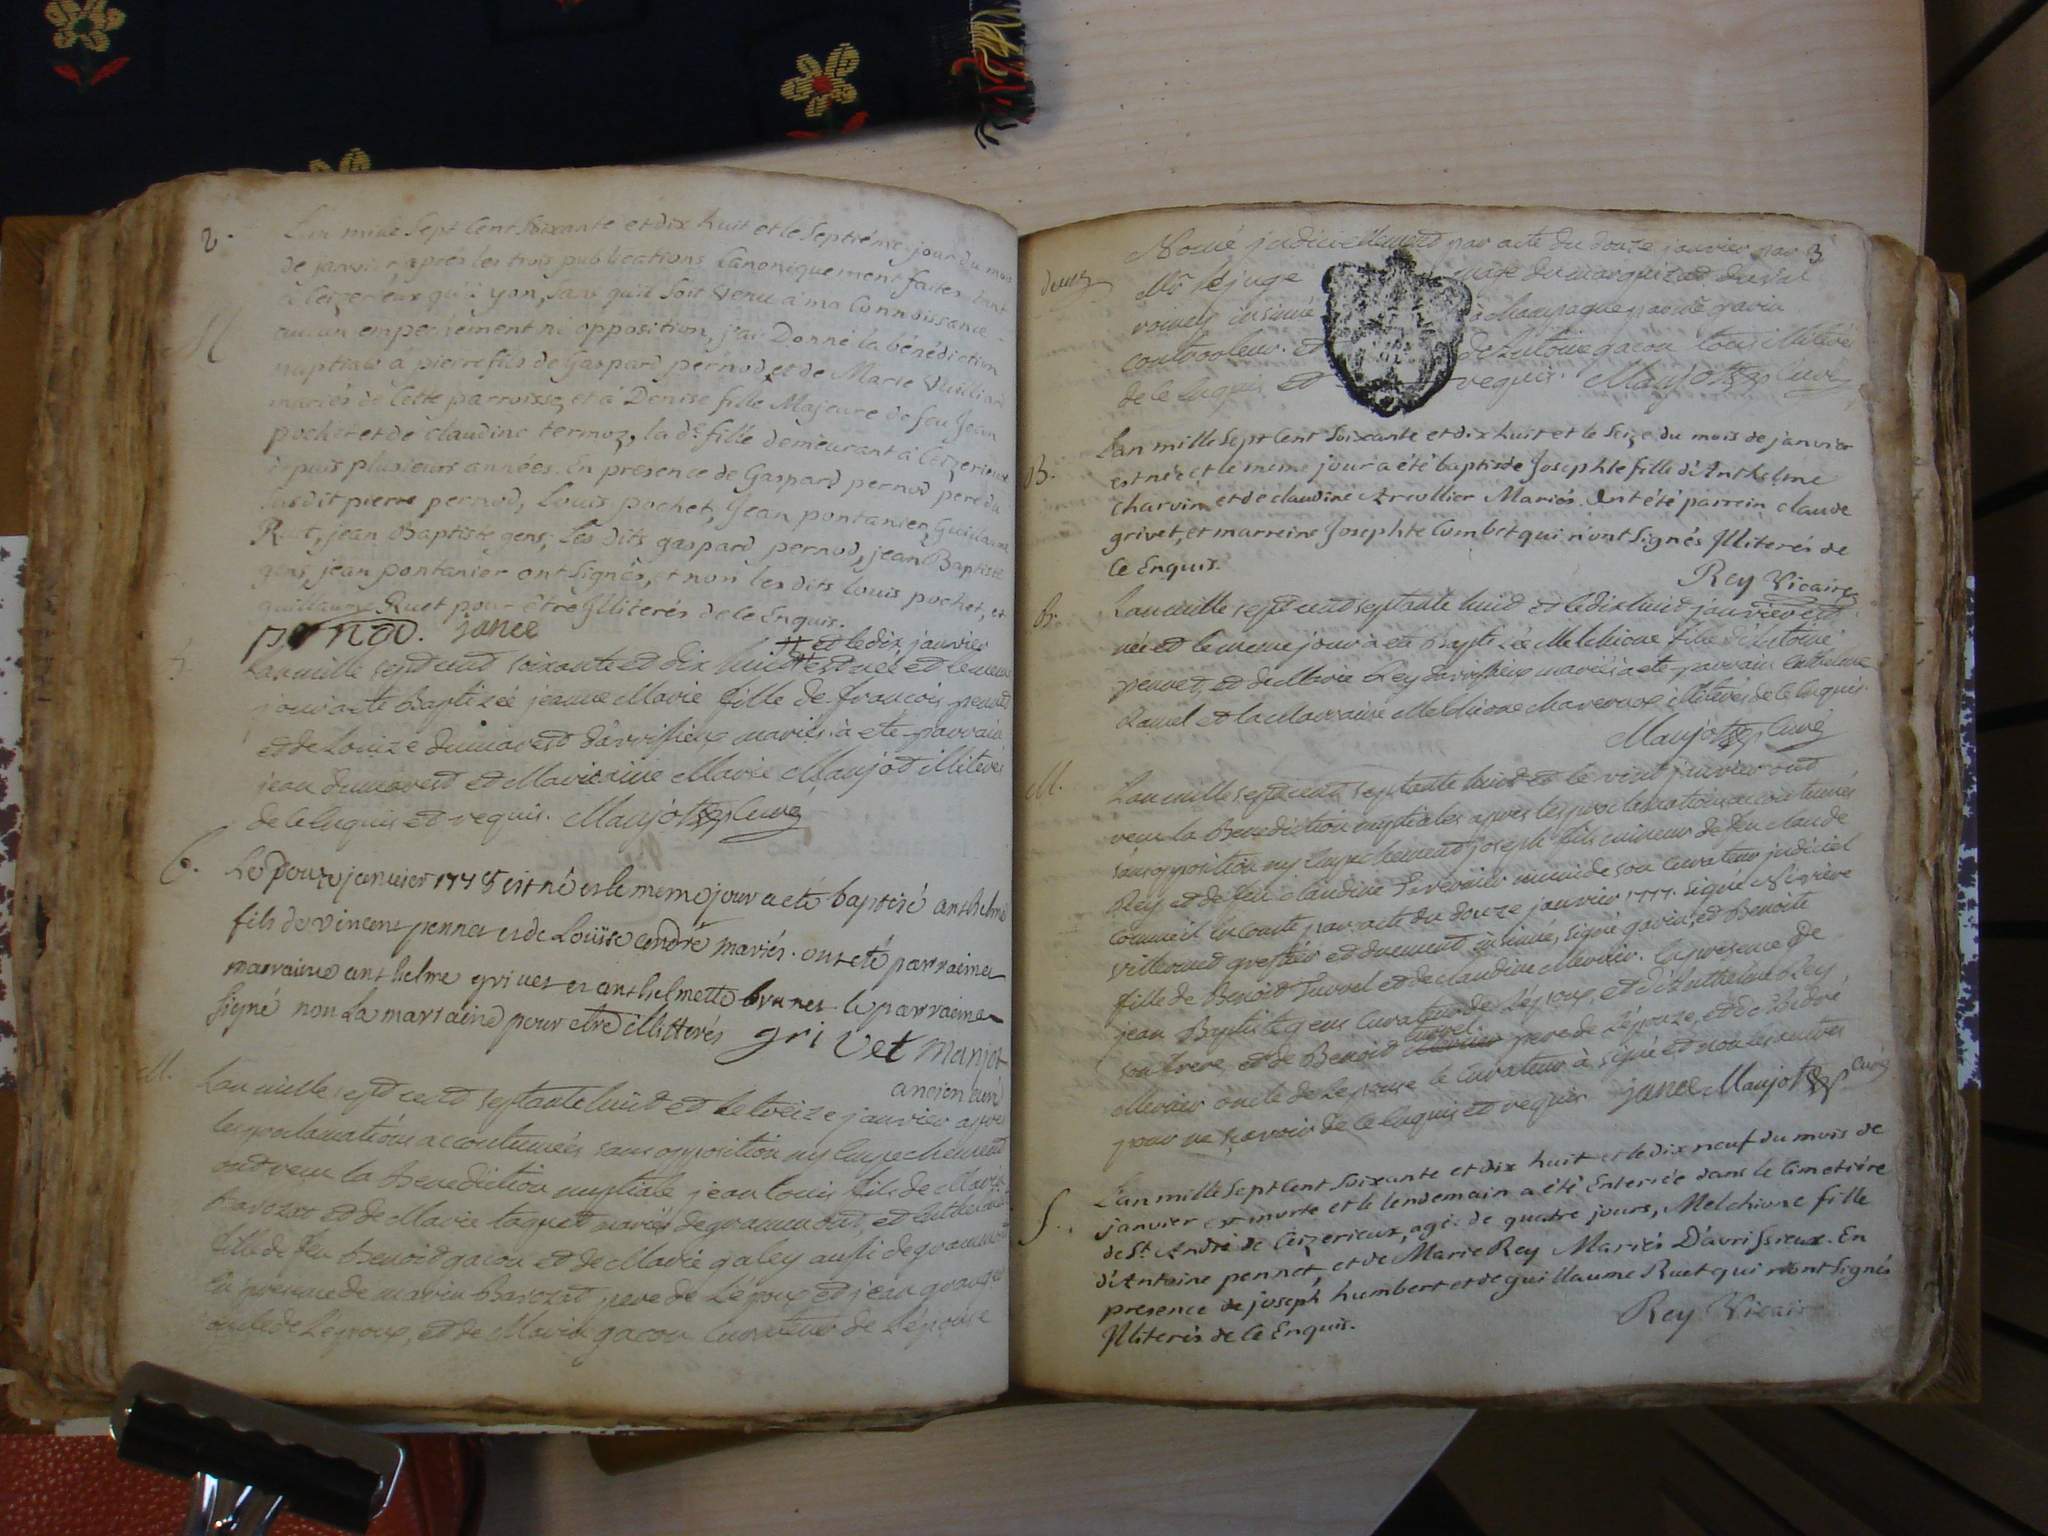 2.
L'an mille Sept Cent Soixante et dix huit et le Septième jour du mois
de janvier, après les trois publications Canoniquement faites tant
à Ceizerieux qu'à yon, sans qu'il soit venu à ma Connoissance
aucun empechement ni opposition, j'ai Donné la bénédiction
M
nuptiale à pierre fils de Gaspard pernod et de Marie Vuilliard
mariés de Cette parroisse, et à Denise fille Majeure de feu Jean
pochet et de claudine termoz, la de fille demeurant à Ceizerieux
depuis plusieurs années. En presence de Gaspard pernod pere du
susdit pierre pernod, Louis pochet, Jean pontanier, Guillaume
Ruet, jean Baptiste gens; Les dits gaspard pernod, jean Baptiste
gens, jean pontanier ont Signés, et non les dits Louis pochet, et
guillaume Ruet pour être Illiterés de ce Enquis.
pernod. janee
et le dix janvier
L'an mille sept cent soixante et dix huit est née et le meme
jour a ete Baptizée jeanne Marie fille de francois pennet
et de Louize dumarest d'avrissieux mariés. à eté parrain
jean dumarest et Marraine Marie Maujot illiterés
de ce Enquis et requis. Maujot Curé
Le Douze janvier 1778 est né et le meme jour a eté baptisé anthelme
fils de vincent pennet et de Louïse andré mariés. ont eté parrain et
marraine anthelme grivet et anthelmette brunet le parrain a
signé non La marraine pour etre illitterés grivet Maujot
ancien curé
M.
L'an mille sept cent septante huit et le treize janvier apres
les proclamations accoutumées sans opposition ny Empechement
ont recu la Benediction nuptiale jean Louis fils de Marin
Barozat et de Marie taquet mariés de grammont, et Anthelmette
fille de feu Benoit gacon et de Marie galey aussi de grammont
En presence de marin Barozat pere de L'époux et jean
oncle de Lepoux, et de Marin gacon Curateur de L'épouse
3
Nomé judiciellement par acte du douze janvier par
Mr le juge du marquizat du val
romey insinué à Champagne par gavin
controoleur. et de Antoine gacon tous illiterés
de ce Enquis et requis. Maujot Curé
L'an mille Sept Cent Soixante et dix huit et le Seize du mois de janvier
B.
est née et le meme jour a été baptisée Josephte fille d'Anthelme
charvin et de claudine Arcollier Mariés. Ont été parrein claude
grivet, et marreine Josephte Cumbet qui n'ont Signés Illiterés de
Ce Enquis.
Rey Vicaire
B.
L'an mille sept cent septante huit et le dix huit janvier est
née et le meme jour a eté Baptizée Melchione fille d'Antoine
pennet, et de Marie Rey d'avrissieux mariés a eté parrain Anthelme
Ramel et la Marraine Melchione illiterés de ce Enquis.
Maujot Curé
M.
L'an mille sept cent septante huit et le vint janvier ont
recu la Benediction nuptiale apres les proclamations accoutumées
sans opposition ny Empechement joseph fils mineur de feu claude
Rey et de feu claudine munide son Curateur judiciel
comme il En Conste par acte du douze janvier 1777. signé
greffier et duement insinué, signé gavin, et Benoite
fille de Benoit Turrel et de claudine Mercier. En presence de
jean Baptiste gens Curateur de L'époux, et d'Anthelme Rey
son frere, et de Benoit turrel pere de L'épouze, et d'André
Mercier oncle de Lepouse le Curateur à signé et non les autres
pour ne scavoir de ce Enquis et requis janee Maujot Curé
L'an mille Sept Cent Soixante et dix huit et le dix neuf du mois de
S.
janvier est morte et le lendemain a été Enterrée dans le Cimetière
de St. André de Ceizerieux, agée de quatre jours, Melchione fille
d'Antoine pennet, et de Marie Rey Mariés D'avrissieux. En
presence de joseph humbert et de guillaume Ruet qui n'ont Signés
Illiterés de Ce Enquis.
Rey Vicaire